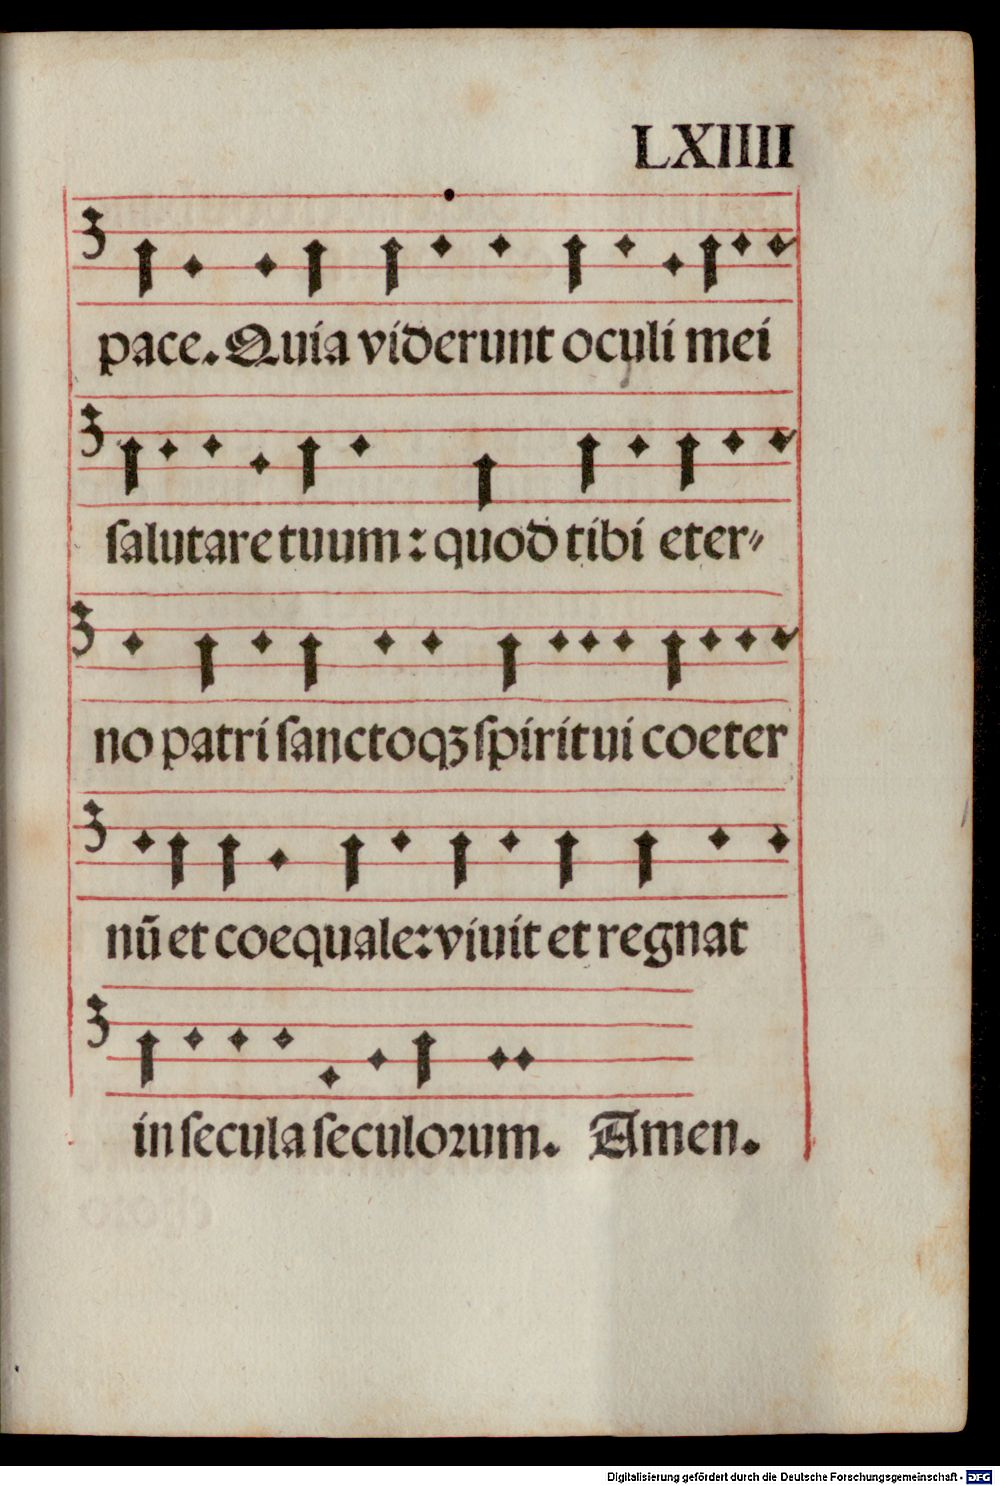 LXIIII
pace. Quia viderunt oculi mei
ſalutare tuum : quod tibi eter⸗
no patri ſanctoqꝫ ſpiritui coeter
nū et coequale: viuit et regnat
in ſecula ſeculoꝛum. Amen.
Digitalisierung gefördert durch die Deutsche Forschungsgemeinschaft - DFG